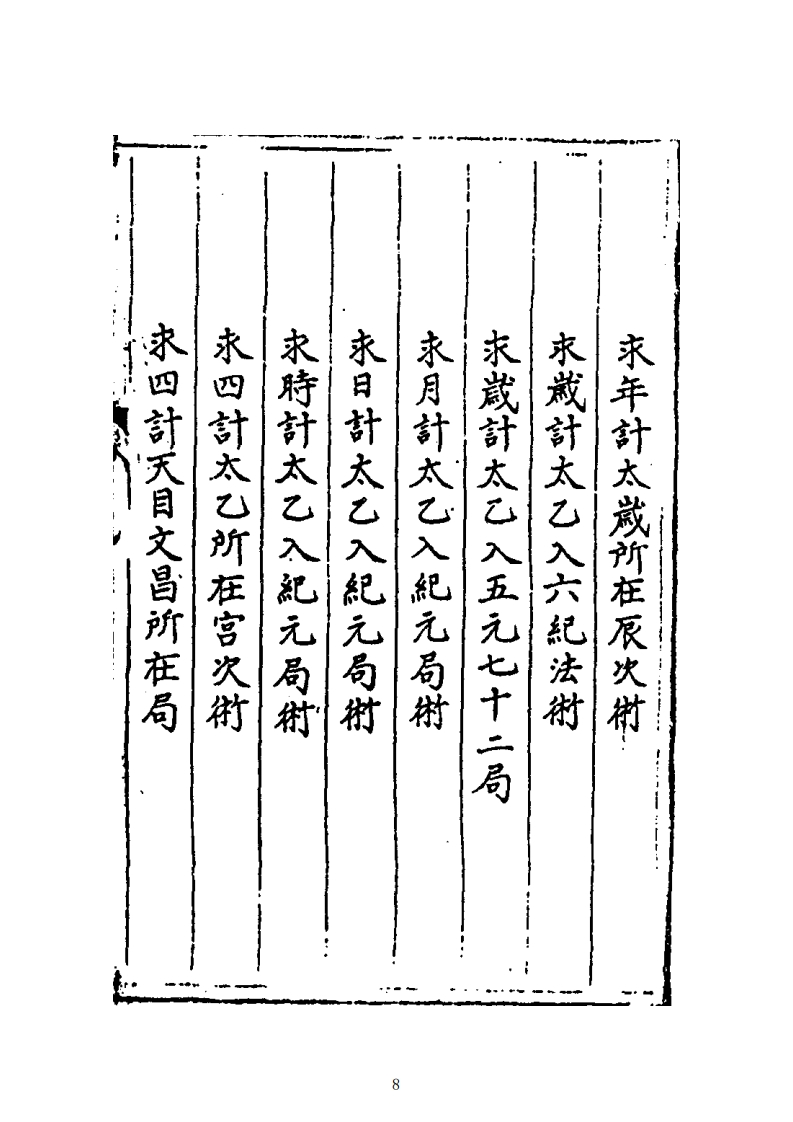 求年計太歲所在辰次術
求歲計太乙入六紀法術
求歲計太乙入五元七十二局
求月計太乙入紀元局術
求日計太乙入紀元局術
求時計太乙入紀元局術
求四計太乙所在宮次術
求四計天目文昌所在局
8